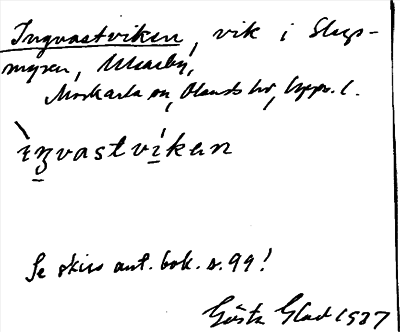 Ingvastviken, vik i Slags-
myren,
Morkarla sn, Olands hd, Upps. l.
ìŋvastvíkan
Se skiss ant. bok. s. 99!
Gösta Glad 1937